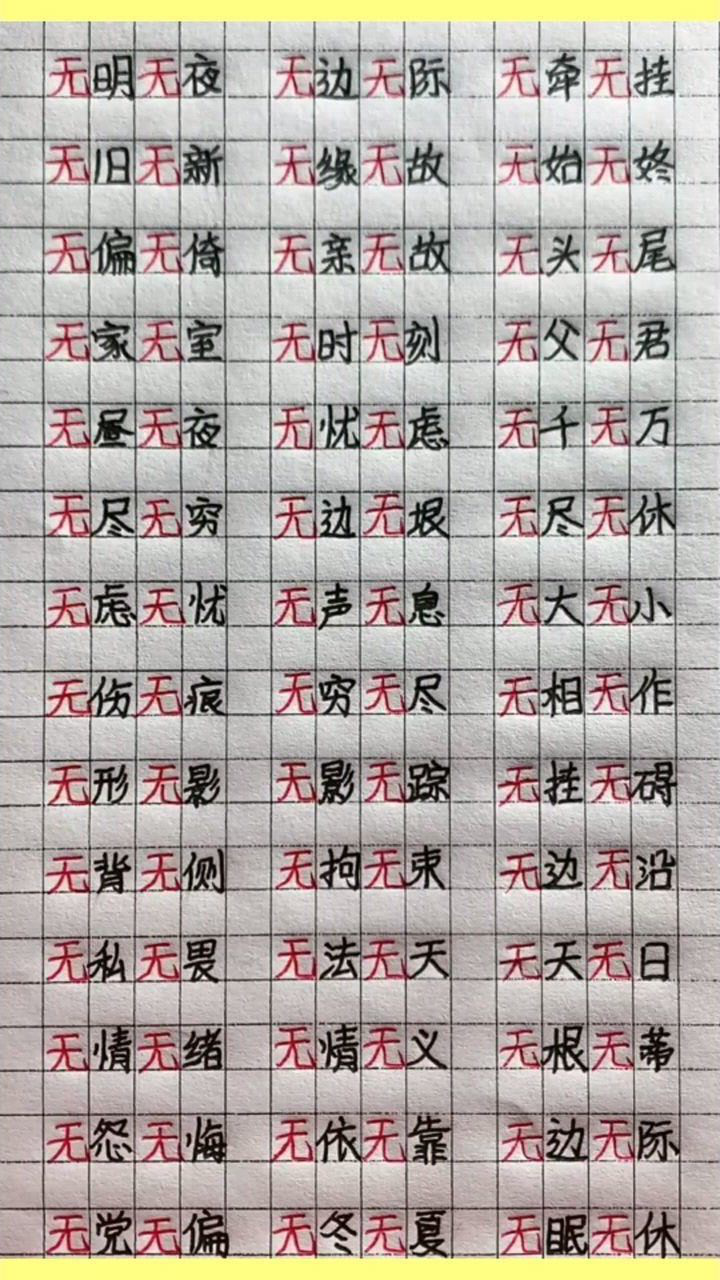 无明无夜 无边无际 无牵无挂
无旧无新 无缘无故 无始无终
无偏无倚 无亲无故 无头无尾
无家无室 无时无刻 无父无君
无昼无夜 无忧无虑 无千无万
无尽无穷 无边无垠 无尽无休
无虑无忧 无声无息 无大无小
无伤无痕 无穷无尽 无相无作
无形无影 无影无踪 无挂无碍
无背无侧 无拘无束 无边无沿
无私无畏 无法无天 无天无日
无情无绪 无情无义 无根无蒂
无怨无悔 无依无靠 无边无际
无党无偏 无冬无夏 无眠无休